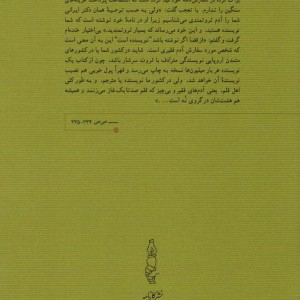 سنگین را ندارم. با تعجب گفت: «ولی به حسب توصیهٔ همان دکتر ایرانی
شما را آدم ثروتمندی می‌شناسیم زیرا او در نامهٔ خود نوشته است که شما
نویسنده هستید، و این خود می‌رساند که بسیار ثروتمندید.» بی‌اختیار خنده‌ام
گرفت و گفتم: «از قضا اگر نوشته باشد "نویسنده است" این به آن معنی است
که شخص مورد سفارش آدم فقیری است. شاید در کشور شما یا در کشورهای
متمدن اروپایی نویسندگی مترادف با ثروت سرشار باشد، چون از کتاب یک
نویسنده هر بار میلیون‌ها نسخه به چاپ می‌رسد و قهراً پول خوبی هم نصیب
نویسندهٔ آن خواهد شد. ولی در کشور ما نویسنده یا مترجم، و به طور کلی
اهل قلم، یعنی آدم‌های فقیر و بی‌چیز که قلم صدتا یک غاز می‌زنند و همیشه
هم هشت‌شان در گروی نُه است. ...»
۲۳۴-۲۳۵